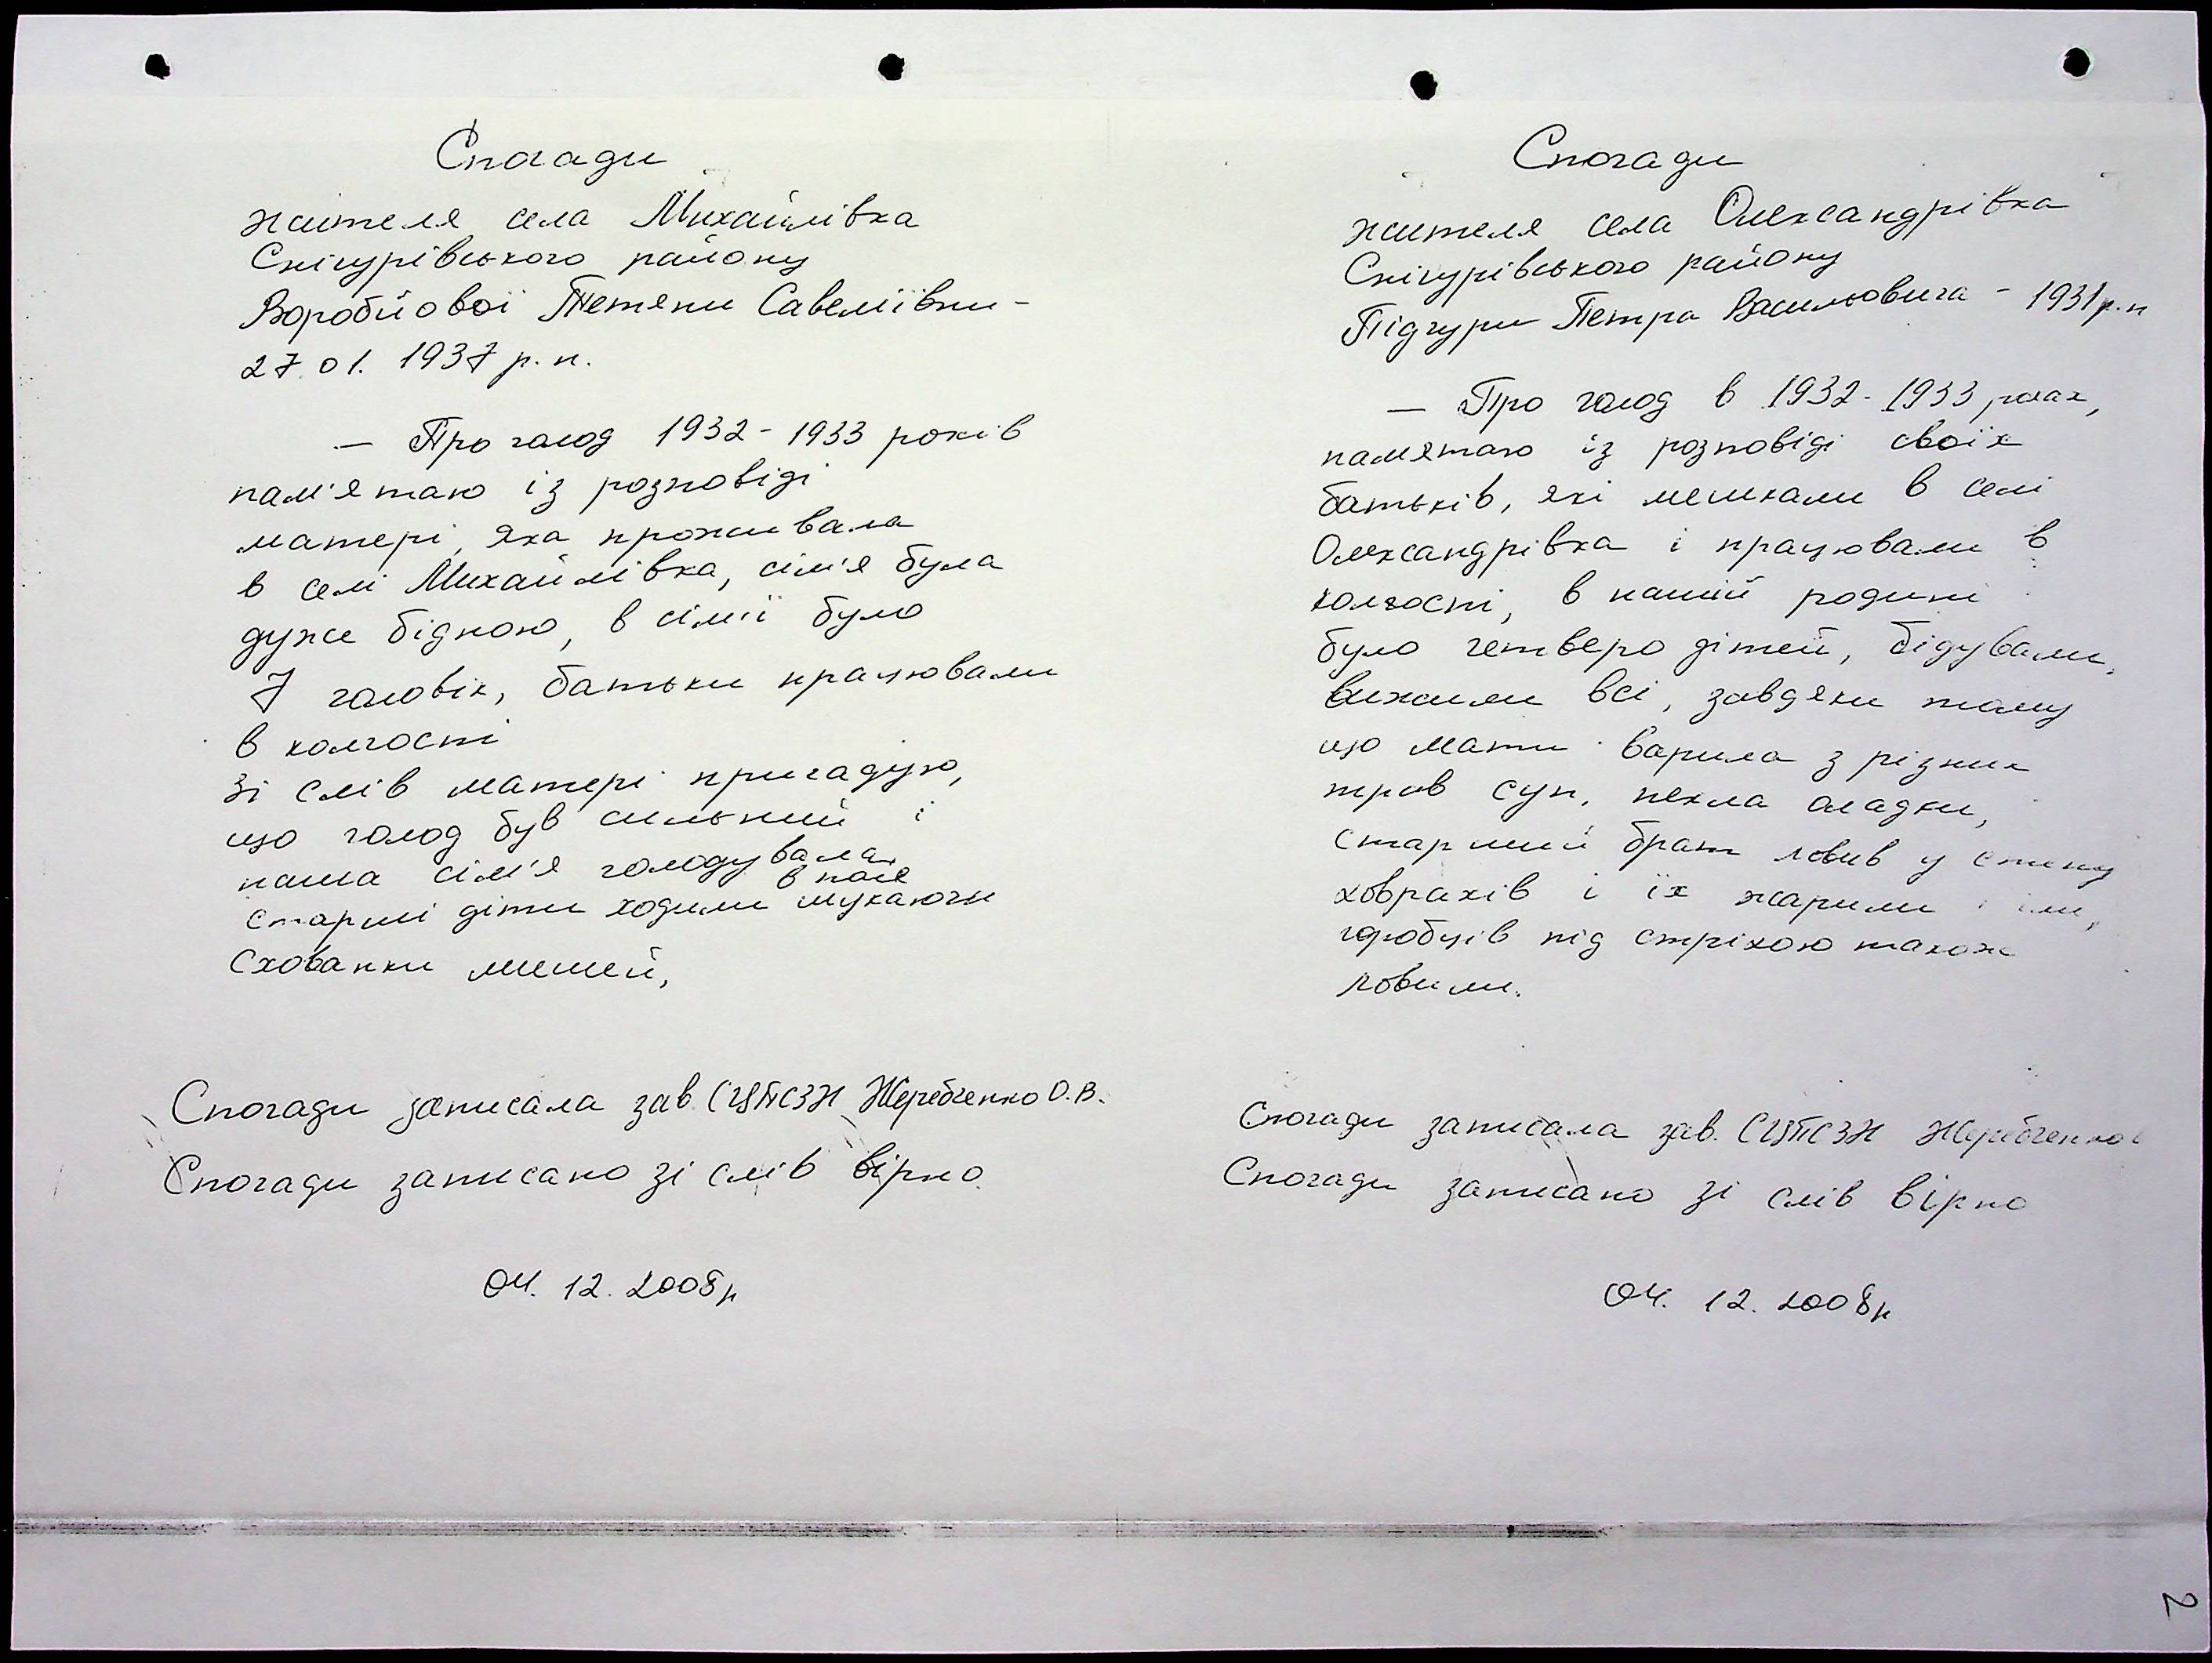 Спогади
жителя села Михайлівка
Снігурівського району
Воробйової Тетяни Савеліївни -
27.01.1937 р.н.
— Про голод 1932 - 1933 років
пам'ятаю із розповіді
матері, яка проживала
в селі Михайлівка, сім'я була
дуже бідною, в сім'ї було
7 чоловік, батьки працювали
в колгоспі
Зі слів матері пригадую,
що голод був сильний і
наша сім'я голодувала,
в поле
старші діти ходили шукаючи
схованки мишей,
Спогади записала зав. СЦПСЗН Жеребченко О.В.
Спогади записано зі слів вірно.
04. 12. 2008р
Спогади
жителя села Олександрівка
Снігурівського району
Підгури Петра Васильовича - 1931р.н
— Про голод в 1932 - 1933 роках,
памятаю із розповіді своїх
батьків, які мешкали в селі
Олександрівка і працювали в
колгоспі, в нашій родині
було четверо дітей, бідували,
вижили всі, завдяки тому
що мати варила з різних
трав суп, пекла оладки,
старший брат ловив у степу
ховрахів і їх жарили і їли,
горобців під стріхою також
ловили.
Спогади записала зав. СЦПСЗН Жеребченко
Спогади записано зі слів вірно
04. 12. 2008р
2